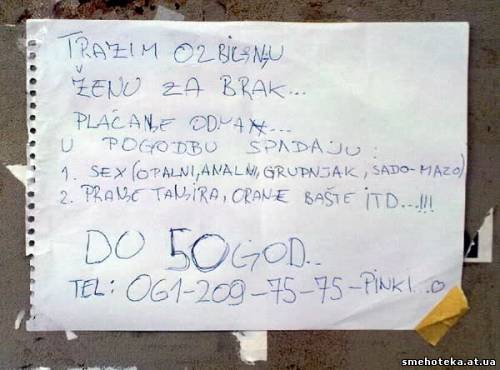 TRAZIM OZBILJNU
ŽENU ZA BRAK...
PLAĆANJE ODMAH...
U POGODBU SPADAJU:
1. SEX (OPALNI, ANALNI, GRUPNJAK, SADO-MAZO)
2. PRANJE TANJIRA, ORANJE BAŠTE ITD...!!!
DO 50 GOD..
TEL: 061-209-75-75-PINKI...☺
smehoteka.at.ua